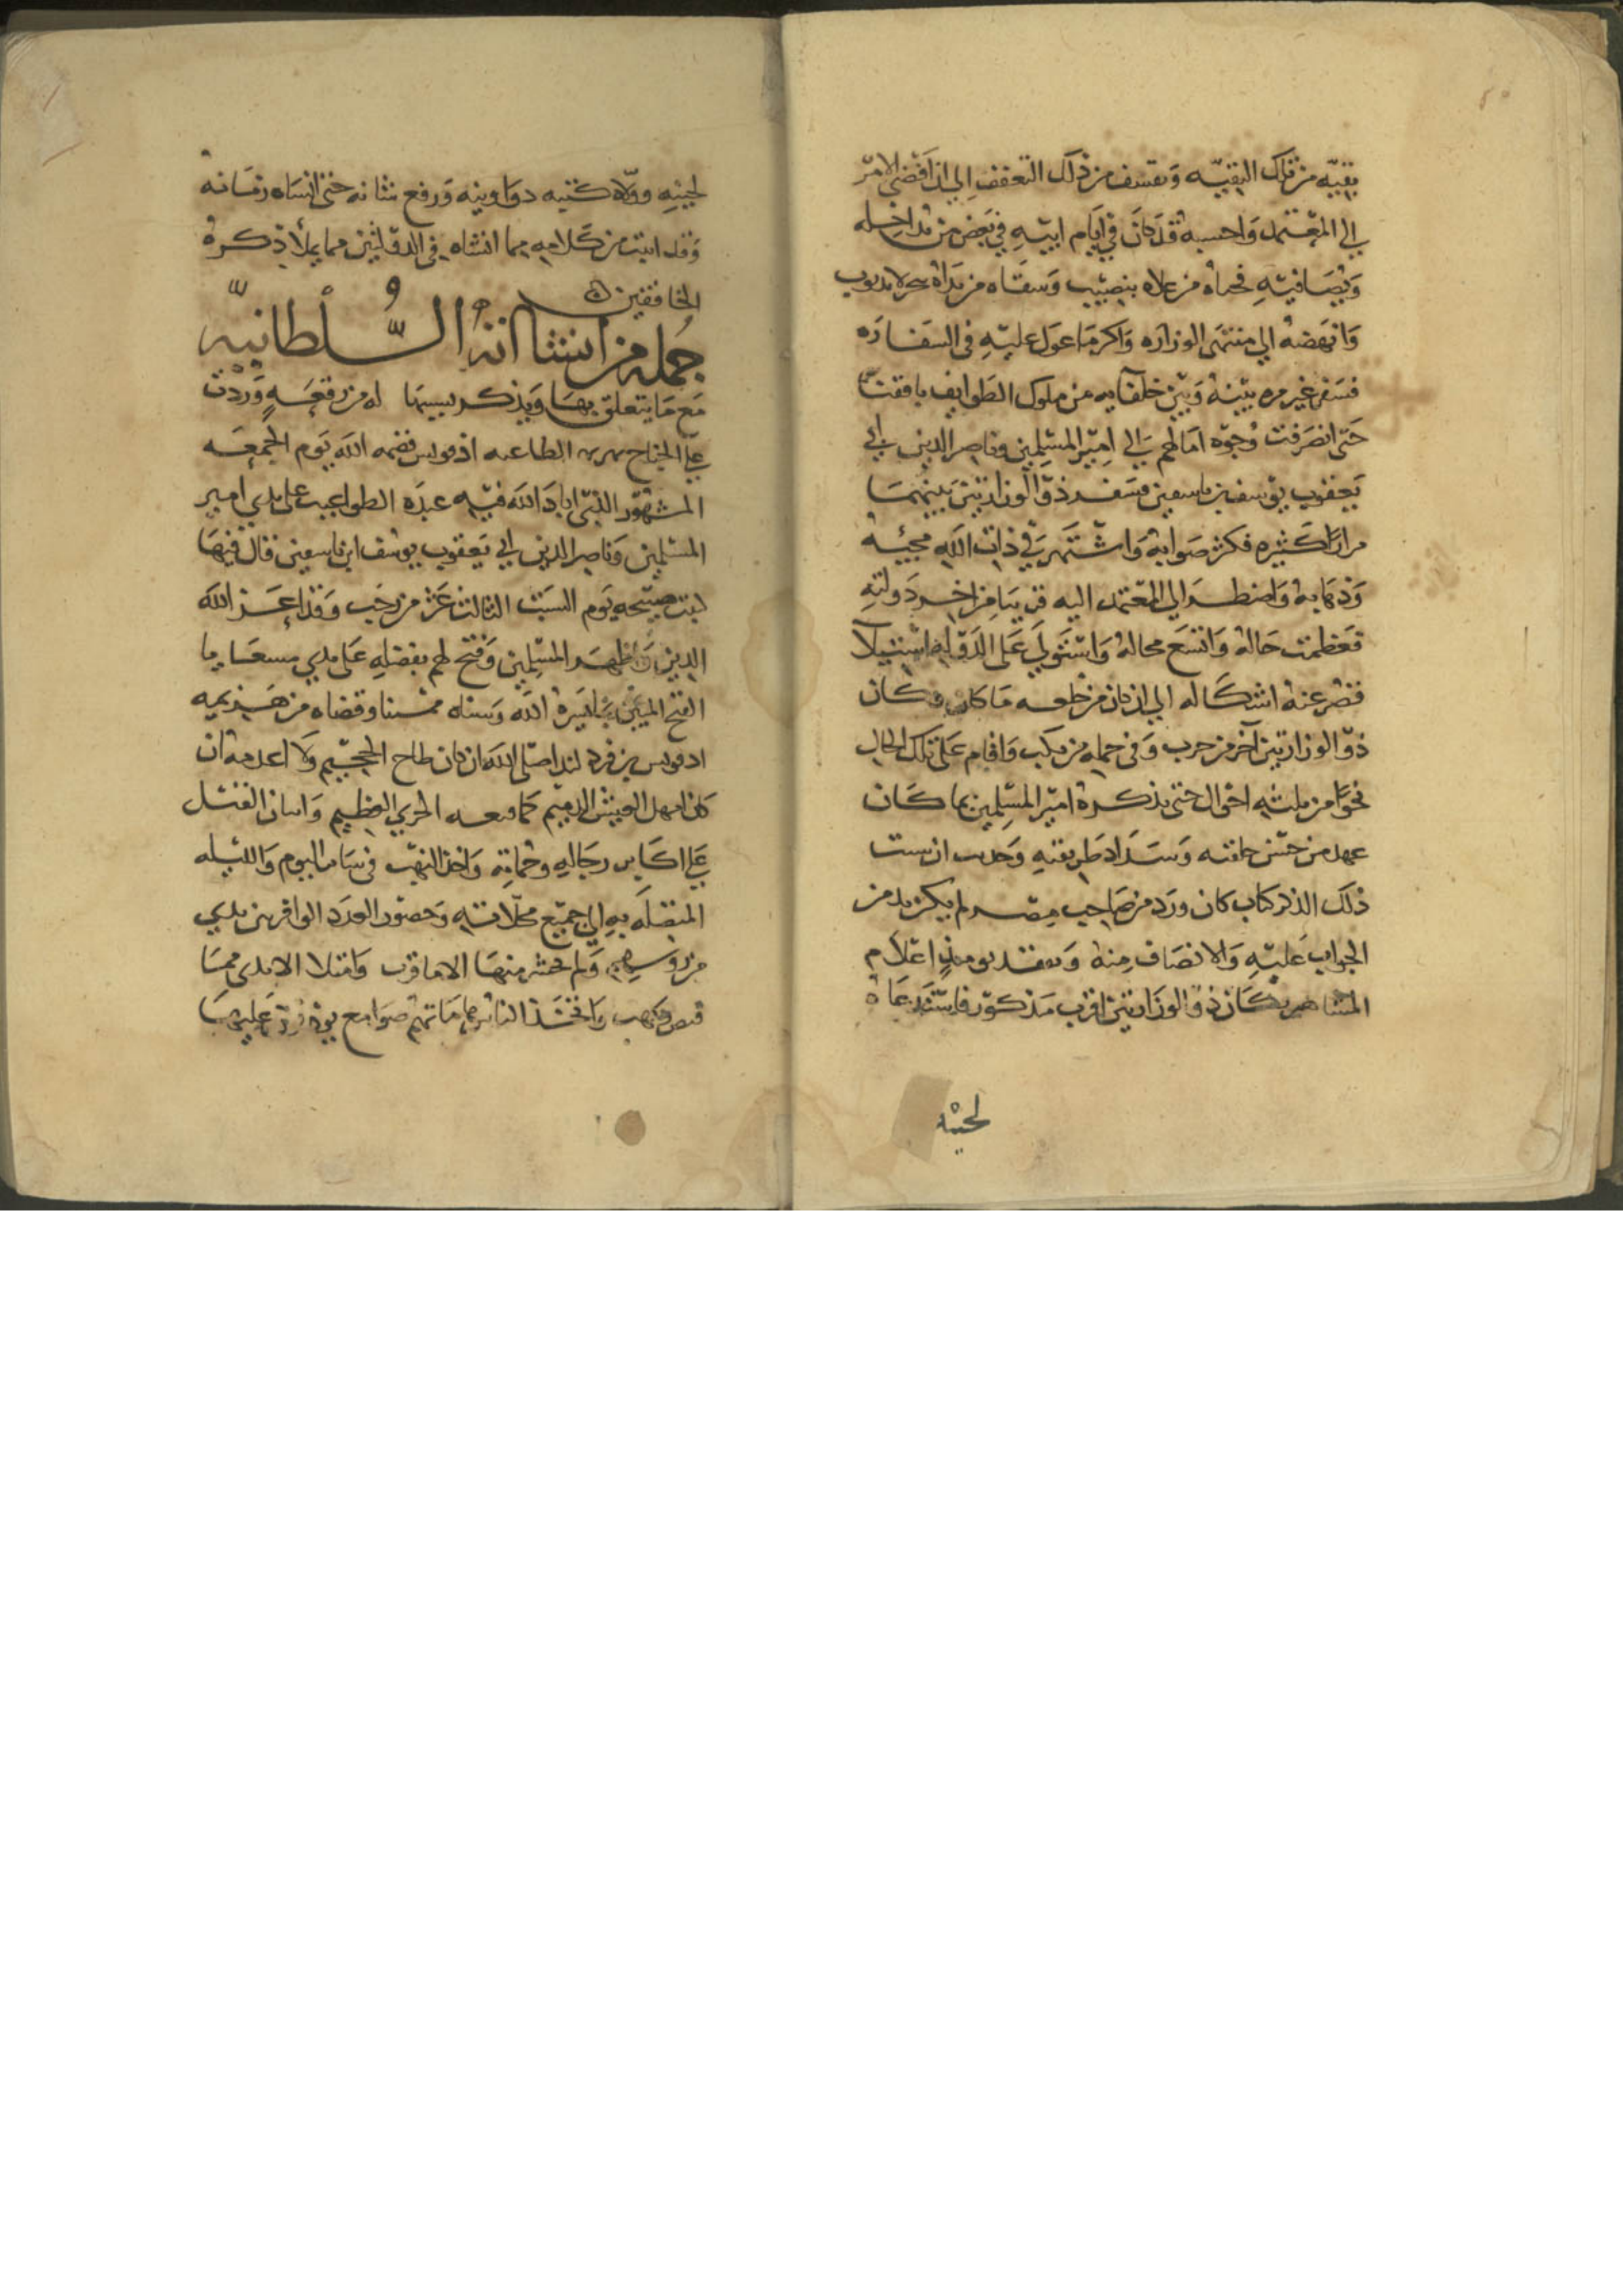 بقيه من تلك البقيه وتعسف من ذلك التعفف الى ان افضى الامر
الى المعتمد واحسبه قد كان في ايام ابيه في بعض من مداخله
ويصافيه فحباه من علاه بنصيب وسقاه من نداه
وانهضه الى منتهى الوزاره واكرم ما عول عليه في السفاره
فسفر غير مره بينه وبين خلفايه من ملوك الطوايف
حتى انصرفت وجوه امالهم الى امير المسلمين وناصر الدين ابي
يعقوب يوسف بن تاسفين فسفر ذو الوزارتين بينهما
مرارا كثيره فكثر صوابه واشتهر في ذات الله مجيئه
وذهابه واضطر الى المعتمد اليه قريبا من اخر دولته
فعظمت حاله واتسع مجاله واستولى على الدوله استيلا
قصر عنه اشكاله الى ان كان من خلعه ما كان وكان
ذو الوزارتين آخر من حرب وفي جمله من نكب واقام على تلك الحال
نحوا من ثلثه احوال حتى تذكره امير المسلمين بما كان
عهد من حسن خلقه وسداد طريقته
ذلك الذكر كتاب كان ورد من صاحب مصر لم يكن بد من
الجواب عليه والانصاف منه وتفقد يومئذ اعلام
المشاهير فكان ذو الوزارتين اقرب مذكور فاستدعاه
لحينه
لحينه وولاه كتبه دواوينه ورفع شانه حتى انساه زمانه
وقد اثبت من كلامه مما انشاه في الدولتين مما يملأ ذكره
الخافقين
جمله من انشاآته السلطانيه
مع ما يتعلق بها ويذكر بسببها له من رقعه وردت
على الجناح الطاعنه اذفونس قصمه الله يوم الجمعه
المشهور الذي اباد الله فيه عبده الطواغيت على يدي امير
المسلمين وناصر الدين ابي يعقوب يوسف ابن تاسفين قال فيها
كتبت صبيحه يوم السبت الثالث عشر من رجب وقد اعز الله
الدين واظهر المسلمين وفتح لهم بفضله على يدي مسعانا
الفتح المبين بما يسره الله وسناه وقضاه من هزيمه
اذفونس بن فرذلند اصلى الله ان كان طاح الجحيم ولا اعدمه ان
كان امهل العيش الذميم كما الخزي العظيم واتيان القتل
على اكابر رجاله وحماته واخذ النهب في ساير اليوم والليله
المتصله به الى جميع محلاته وحضور العدد الوافر بين يدي
من روسهم ولم يحتز منها الا ما قرب وامتلا الايدي مما
قبض ونهب واتخذ الناس هاماتهم صوامع يوذنون عليها